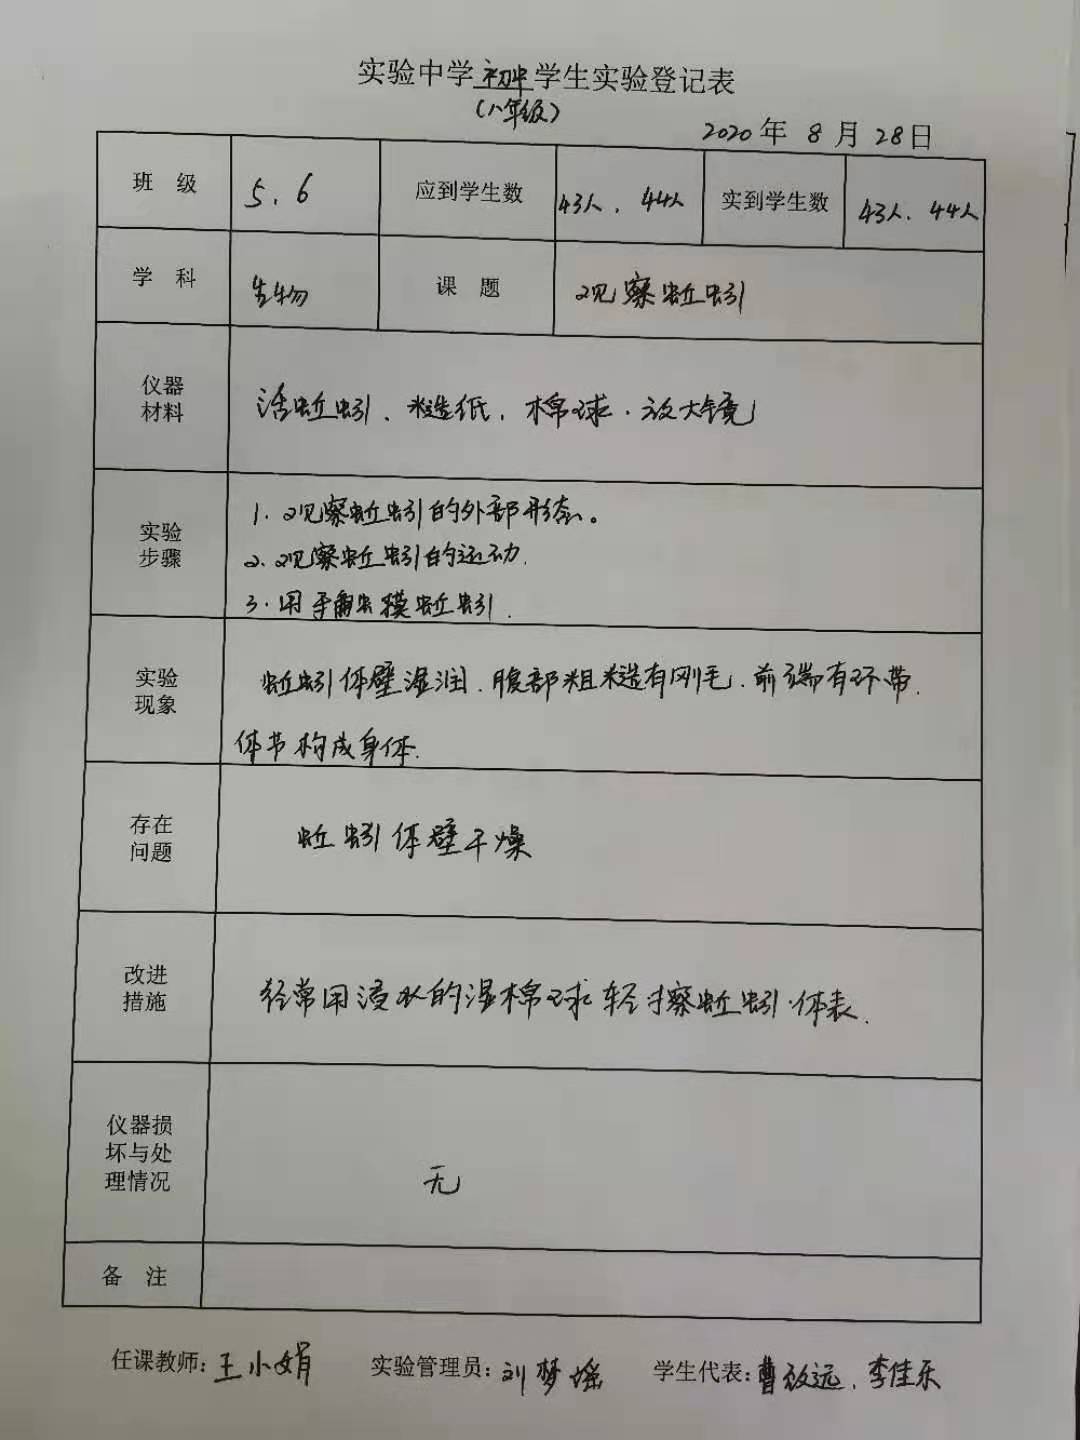 实验中学初中学生实验登记表
(八年级)
2020年 8月 28日
班 级 5、6 应到学生数 43人、44人 实到学生数 43人、44人
学 科 生物 课 题 观察蚯蚓
仪器
材料
活蚯蚓、糙纸、棉球、放大镜
实验
步骤
1. 观察蚯蚓的外部形态。
2. 观察蚯蚓的运动.
3. 用手触摸蚯蚓.
实验
现象
蚯蚓体壁湿润、腹部粗糙有刚毛、前端有环带.
体节构成身体.
存在
问题
蚯蚓体壁干燥
改进
措施
经常用浸水的湿棉球轻擦蚯蚓体表.
仪器损
坏与处
理情况
无
备 注
任课教师:王小娟 实验管理员:刘梦瑶 学生代表:曹致远、李佳乐